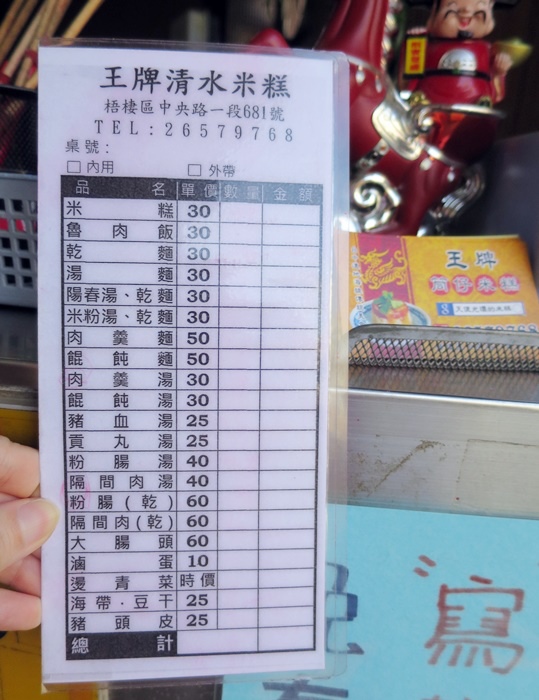 王牌清水米糕
梧棲區中央路一段681號
TEL:26579768
桌號:
□內用 □外帶
品名 單價 數量 金額
米糕 30
魯肉飯 30
乾麵 30
湯麵 30
陽春湯、乾麵 30
米粉湯、乾麵 30
肉羹麵 50
餛飩麵 50
肉羹湯 30
餛飩湯 30
豬血湯 25
貢丸湯 25
粉腸湯 40
隔間肉湯 40
粉腸(乾) 60
隔間肉(乾) 60
大腸頭 60
滷蛋 10
燙青菜 時價
海帶.豆干 25
豬頭皮 25
總計
王牌
筒仔米糕